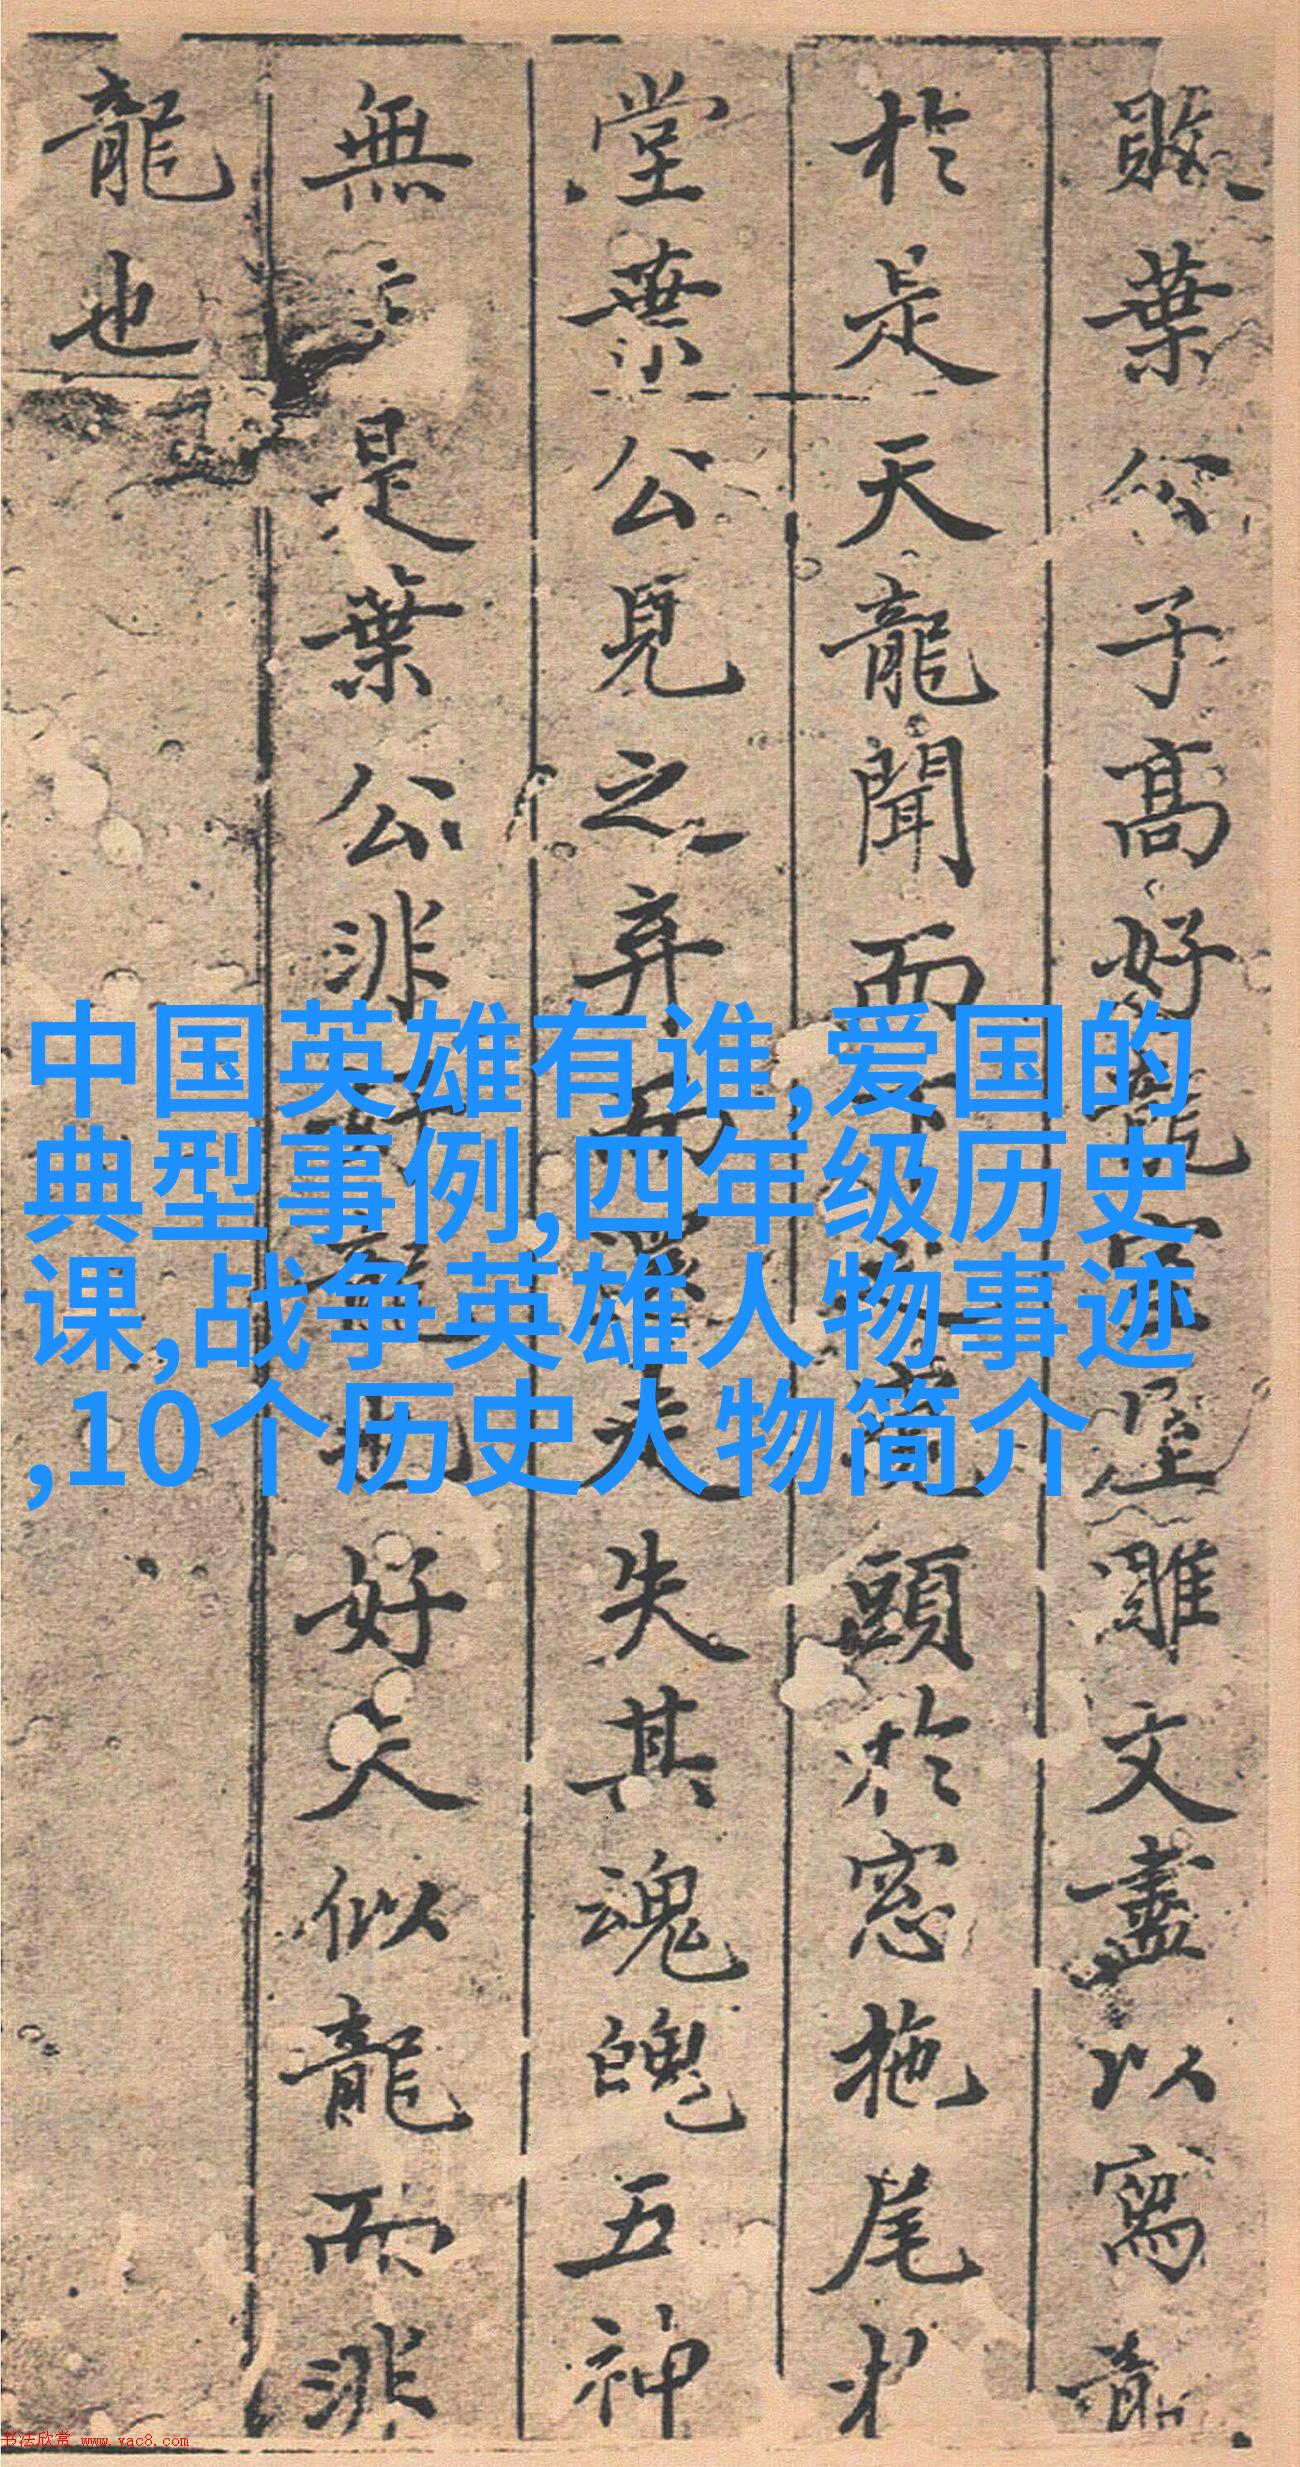 敗葉公子高好龍室屋雕文盡以寫龍
於是天龍聞而下之窺頭於窓拖尾於
堂葉公見之弃而還走失其魂魄五神
無主是葉公非好龍也好夫似龍而非
龍也
中国英雄有谁,爱国的
典型事例,四年级历史
课,战争英雄人物事迹
,10个历史人物简介
书法欣赏 www.yac8.com